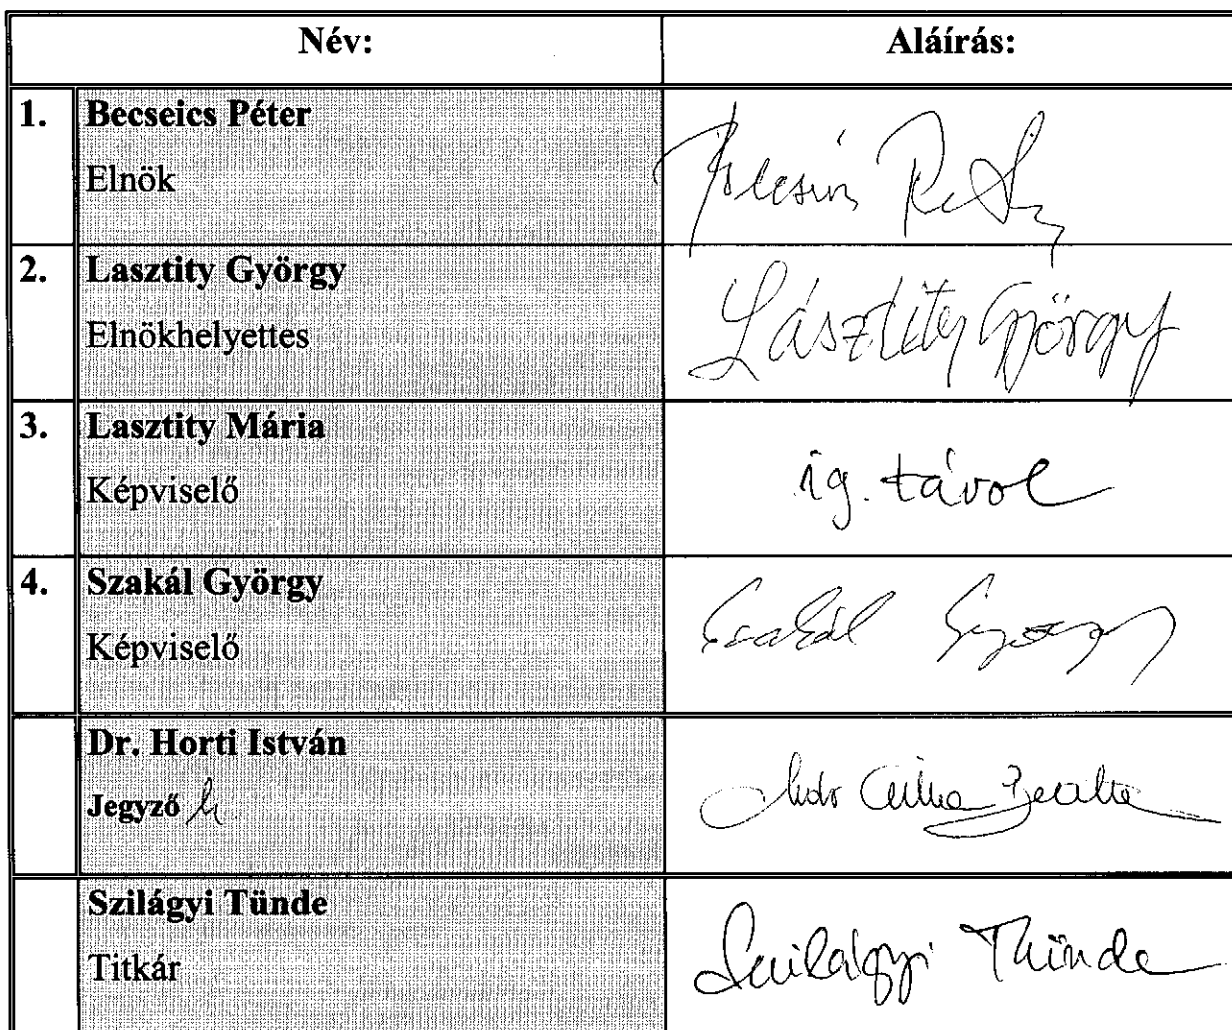 Név: Aláírás:
1. Becseics Péter
Elnök
2. Lasztity György
Elnökhelyettes
Lásztity György
3. Lasztity Mária
Képviselő
ig. távol
4. Szakál György
Képviselő
Szakál György
Dr. Horti István
Jegyző h.
Szilágyi Tünde
Titkár
Szilágyi Tünde